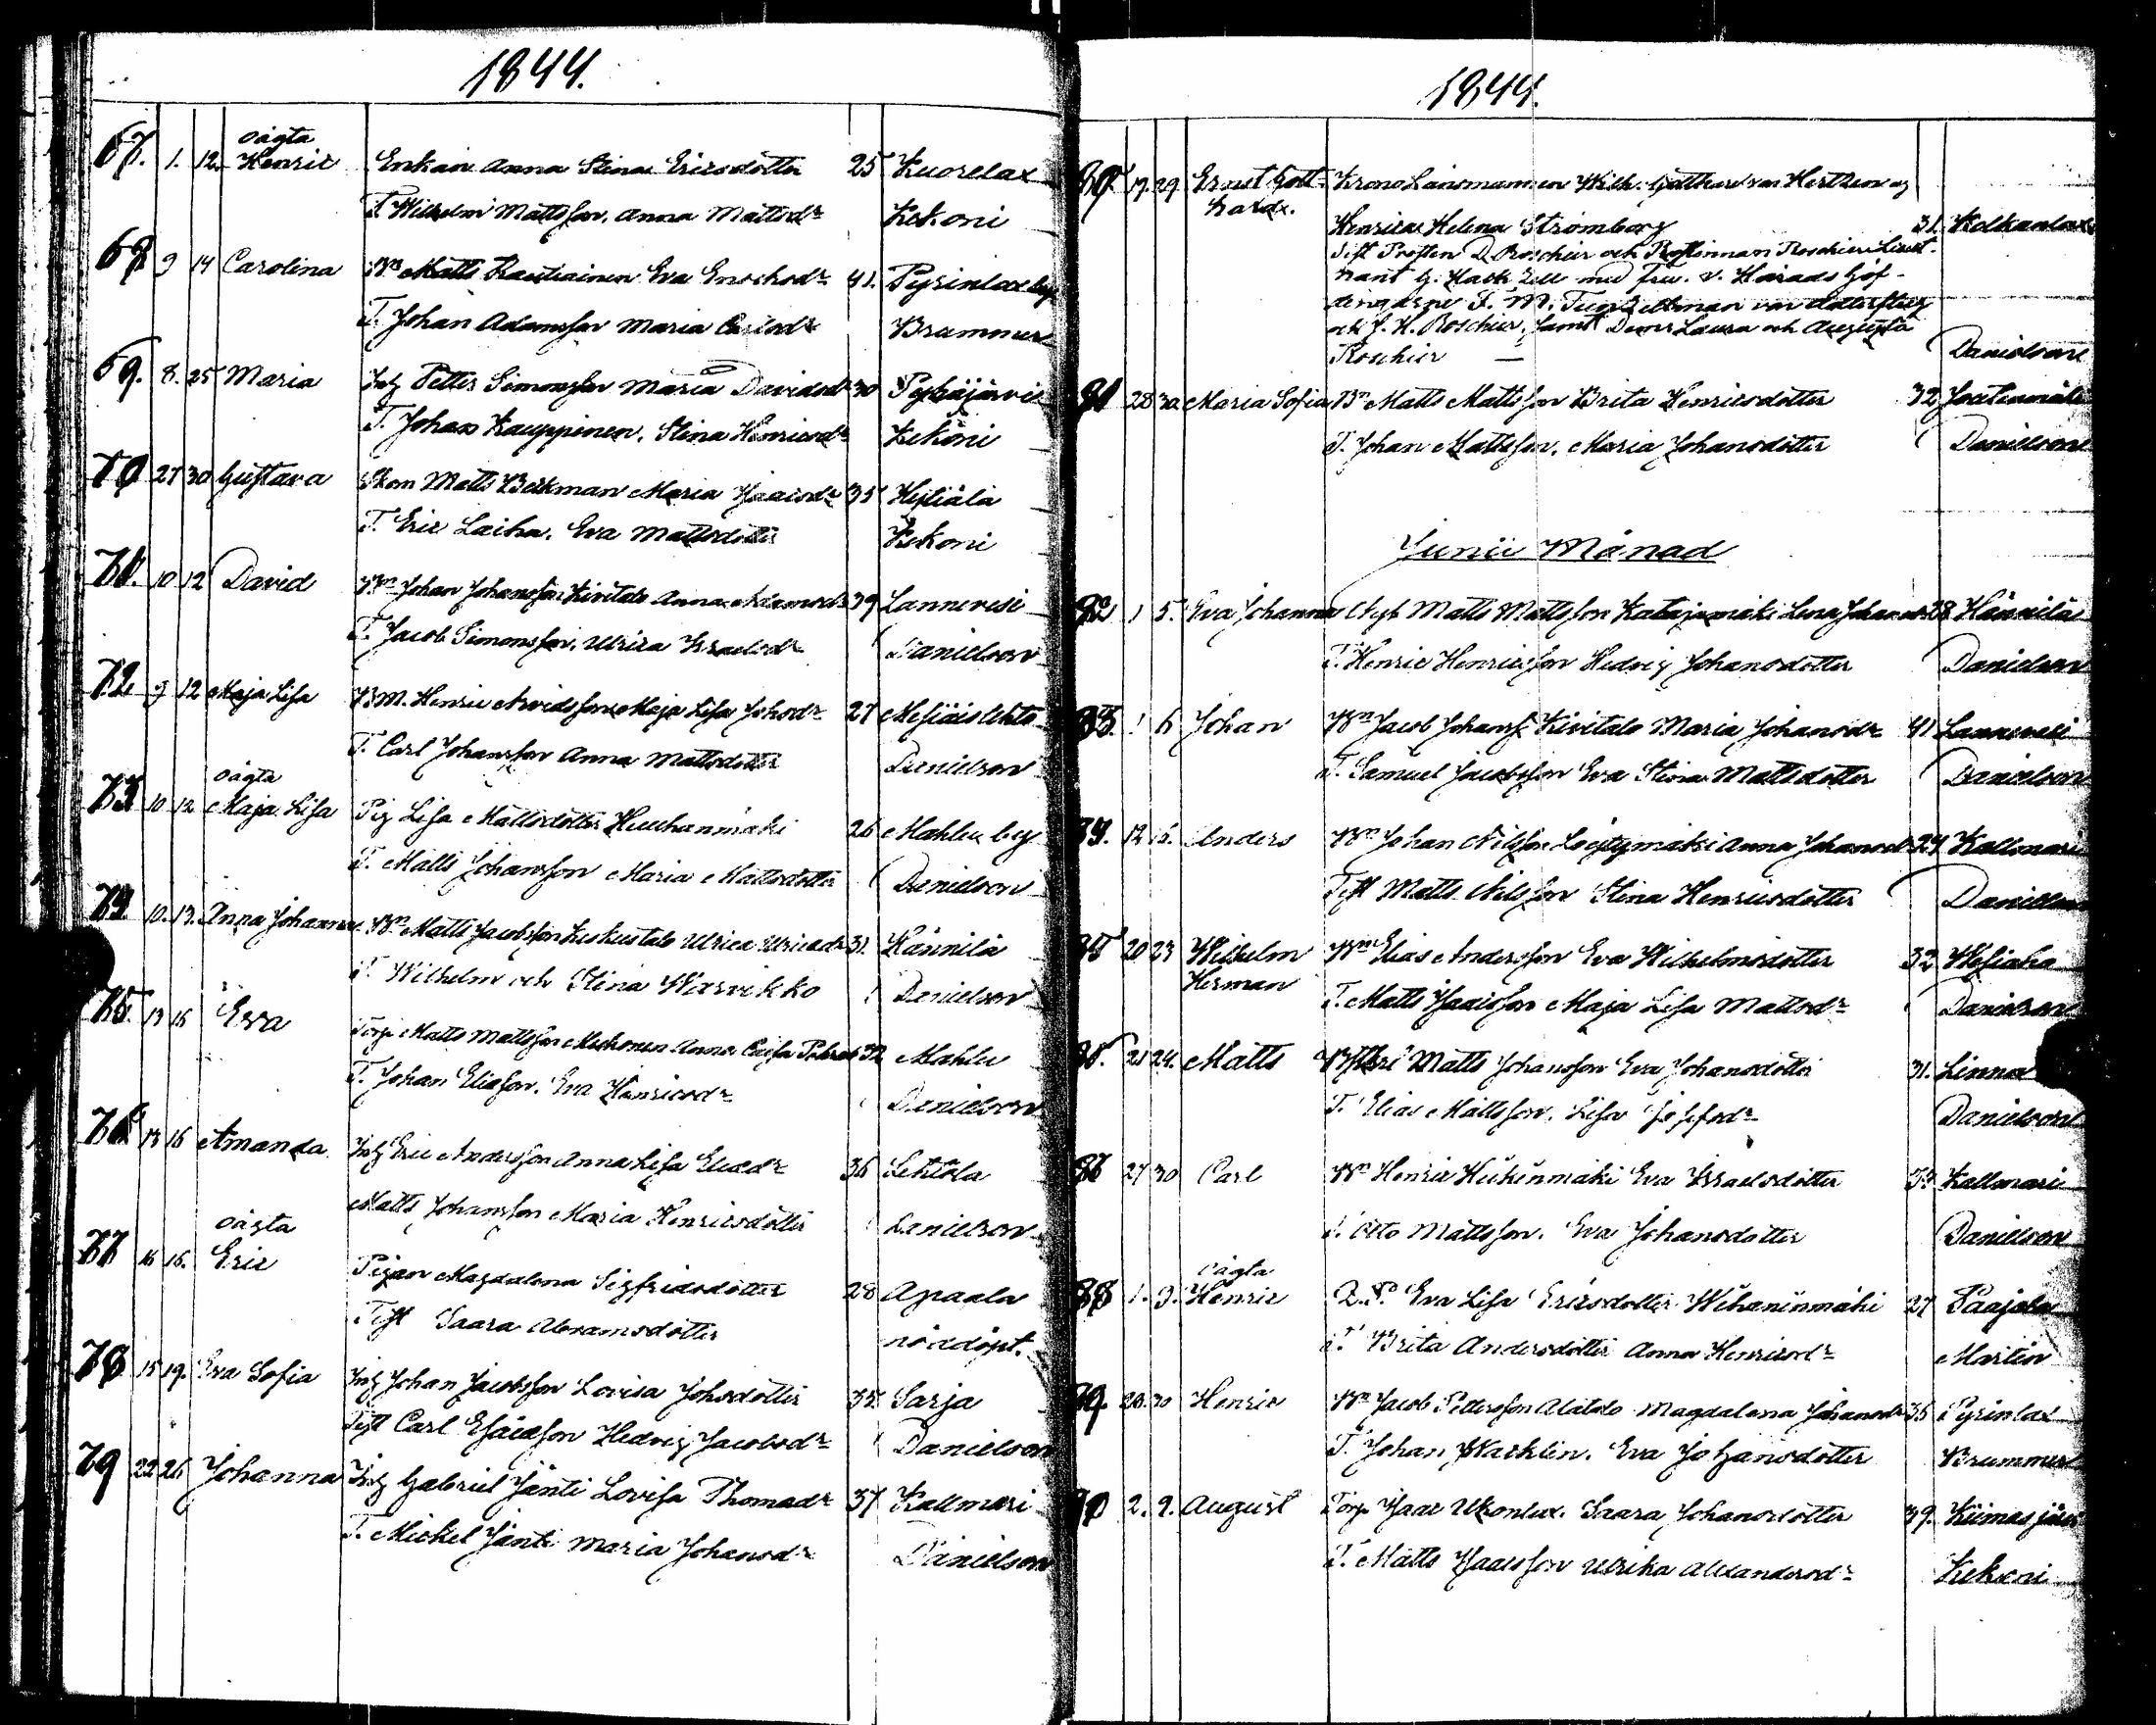 1844.
67. 1. 12. oägta Henric Enkan Anna Stina Ericsdotter 25 Kuorelax
T. Wilhelm Mattsson, Anna Mattsdr Kekoni
68 9 14 Carolina Bn Matts Rautiainen Eva Enochsdr 41. Pyrinlax by
T. Johan Adamsson Maria Carlsdr Brummer
69. 8. 25 Maria Inh Petter Simonsson Maria Davidsdr 30 Pyhäjärvi
T. Johan Kauppinen, Stina Henricsdr Kekoni
70 27 30 Gustava Matts Berkman Maria Isaacsdr 35 Hytiälä
T. Eric Laiha, Eva Mattsdotter Kekoni
71. 10 12 David Bn Johan Johansson Kivitalo Anna Adamsdr 39 Lannevesi
T. Jacob Simonsson, Ulrica Israelsdr Danielson
72 9 12 Maja Lisa BM. Henric Arvidsson Maja Lisa Johsdr 27
T. Carl Johansson Anna Mattsdotter Danielson
73 10 12 oägta Maja Lisa Pig Lisa Mattsdotter Huuhanmäki 26 Mahlu by
T. Matts Johansson Maria Mattsdotter Danielson
74 10. 13. Anna Johanna Bn Matts Jacobsson Keskustalo Ulrica 31. Hännilä
T. Wilhelm och Stina Warvikko Danielson
75. 13 16 Eva Torp Matts Mattsson Anna Caisa 32 Mahlu
T. Johan Eliasson, Eva Henricsdr Danielson
76 13 16 Amanda Inh Eric Andersson Anna Lisa Eliædr 36 Lehtola
Matts Johansson Maria Henricsdotter Danielson
77 16 16. oägta Eric Pigan Magdalena Sigfridsdotter 28 Apaala
Test Saara Abramsdotter nöddöpt.
78 15 19. Eva Sofia Inh Johan Jacobsson Lovisa Johsdotter 35. Sarja
Test Carl Esaiasson Hedvig Jacobsdr Danielson
79 22 26 Johanna Inh Gabriel Jänti Lovisa Thomædr 37 Kallmari
T. Mickel Jänti Maria Johansdr Danielson
1844.
80 17. 29 Ernst Gott- Krono Länsmannen Wilh. Gotthard von Hertzen og
hard. Henrica Helena Strömborg 31. Kolkanlax
Test Prosten D. Roschier och Prostinnan Roschier Lieut-
nant G. Hackzell med fru. V. Härads Höf-
dingarne F. M. Tunzelman von Adlerflug
och J. H. Roschier, samt Dem:r Laura och Augusta
Roschier Danielson
81 28 30. Maria Sofia Bn Matts Mattsson Brita Henricsdotter 32
T. Johan Mattsson, Maria Johansdotter Danielson
Junii Månad
82 1 5. Eva Johanna Nyb Matts Mattsson Katajamäki Lena 38 Hännilä
T. Henric Henricsson Hedvig Johansdotter Danielson
83. 1 6 Johan Bn Jacob Johanss. Kivitalo Maria Johansdr 41 Lannevesi
T. Samuel Jacobsson Eva Stina Mattsdotter Danielson
84. 12 16. Anders Bn Johan Nilsson Löytymäki Anna Johansdr 24 Kallmari
Test Matts Nilsson Stina Henricsdotter Danielson
85 20 23 Wilhelm Bn Elias Andersson Eva Wilhelmsdotter 32
Herman T. Matts Isaacsson Maja Lisa Mattsdr Danielson
86. 21 24. Matts Matts Johansson Eva Johansdotter 31. Linna
T. Elias Mattsson, Lisa Josefsdr Danielson
87 27 30 Carl Bn Henric Eva Israelsdotter Kallmari
T. Otto Mattsson, Eva Johansdotter Danielson
88 1. 9. oägta Henric Q.P. Eva Lisa Ericsdotter 27 Paajala
T. Brita Andersdotter Anna Henricsdr Martin
89. 20. 30 Henric Bn Jacob Pettersson Alatalo Magdalena Johansdr 36 Pyrinlax
T. Johan Wacklin, Eva Johansdotter Brummer
90 2. 9. August Torp Isaac Ukonlux Saara Johansdotter 39. Kiimasjärvi
T. Matts Isaacsson Ulrika Alexandersdr Kekoni